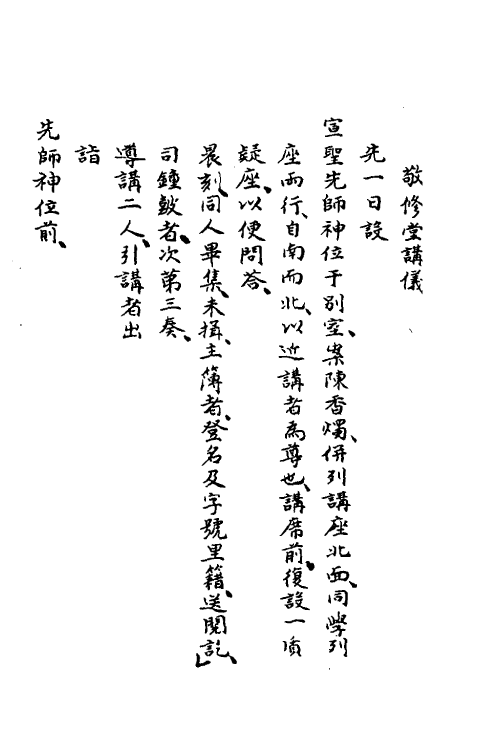 敬修堂講儀
先一日設
宣聖先師神位于別室、案陳香燭、併列講座北面、同學列
座兩行、自南而北、以近講者為尊也、講席前、復設一質
疑座、以便問答、
晨刻、同人畢集、未揖、主簿者、登名及字號里籍、送閱訖、
司鐘鼓者、次第三奏、
導講二人、引講者出
詣
先師神位前、